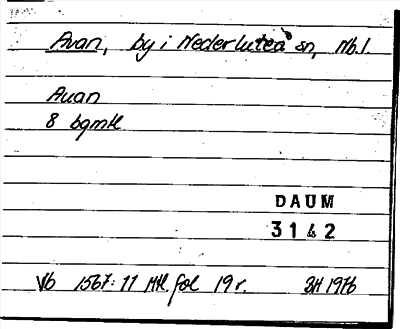 Avan, by i Nederluleå sn, Nb.l.
Auan
8 bgmtl
DAUM
3142
Vb 1567:11 Mtl fol 19r. BH 1976